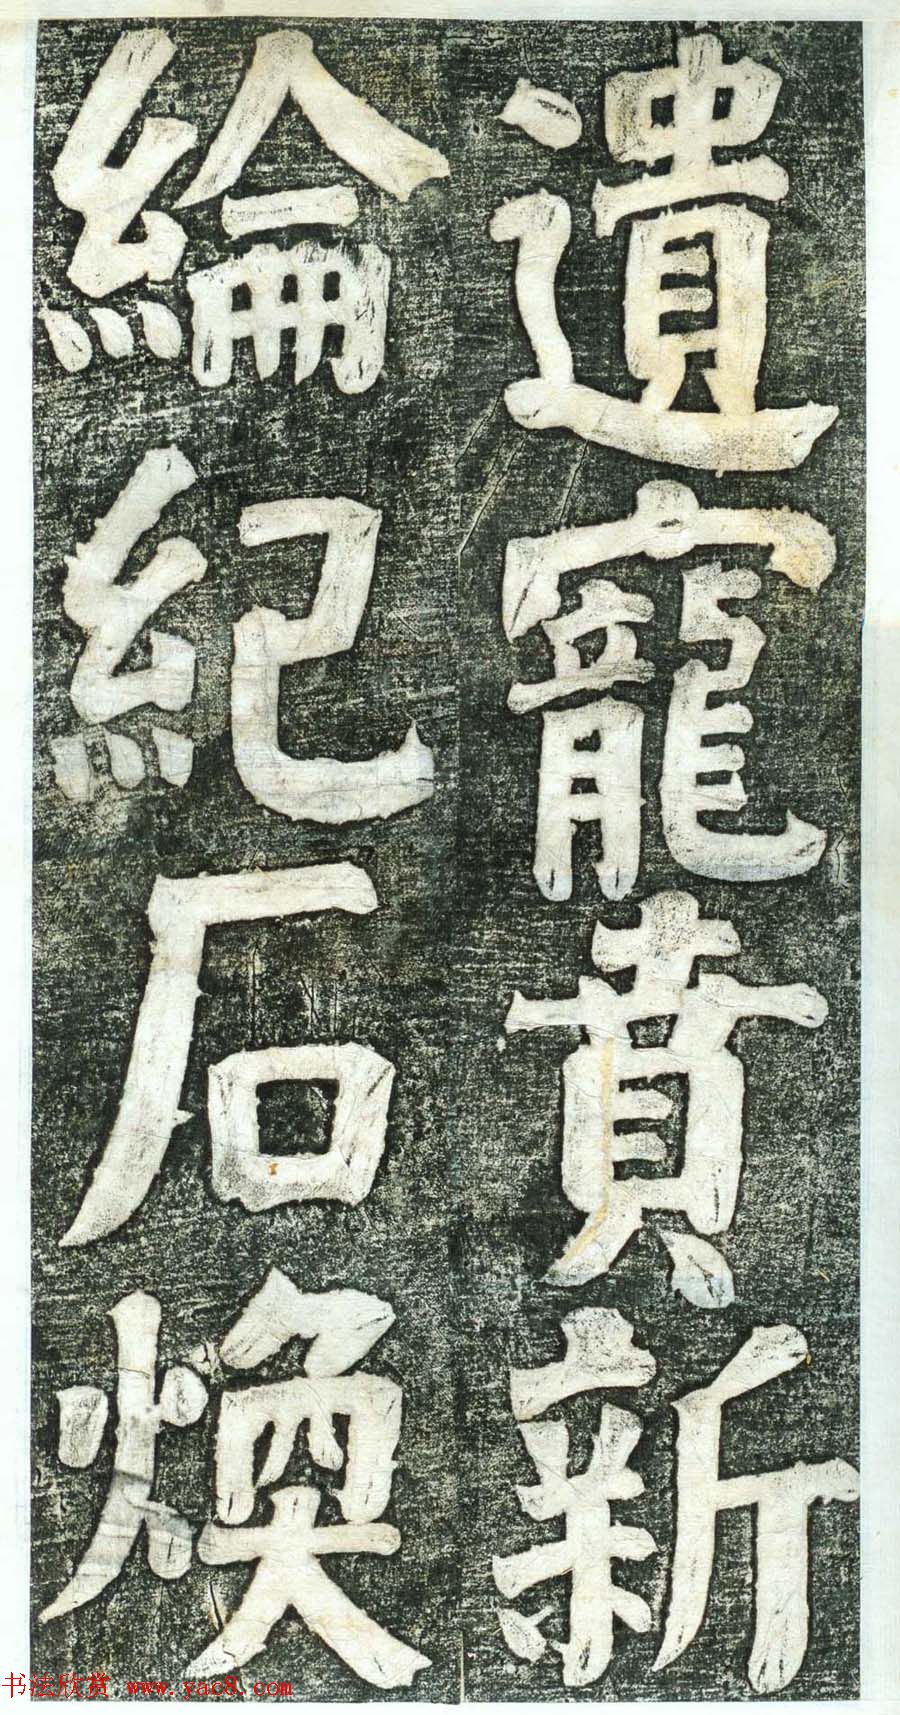 遺寵賁新
綸紀石煥
书法欣赏 www.yac8.com